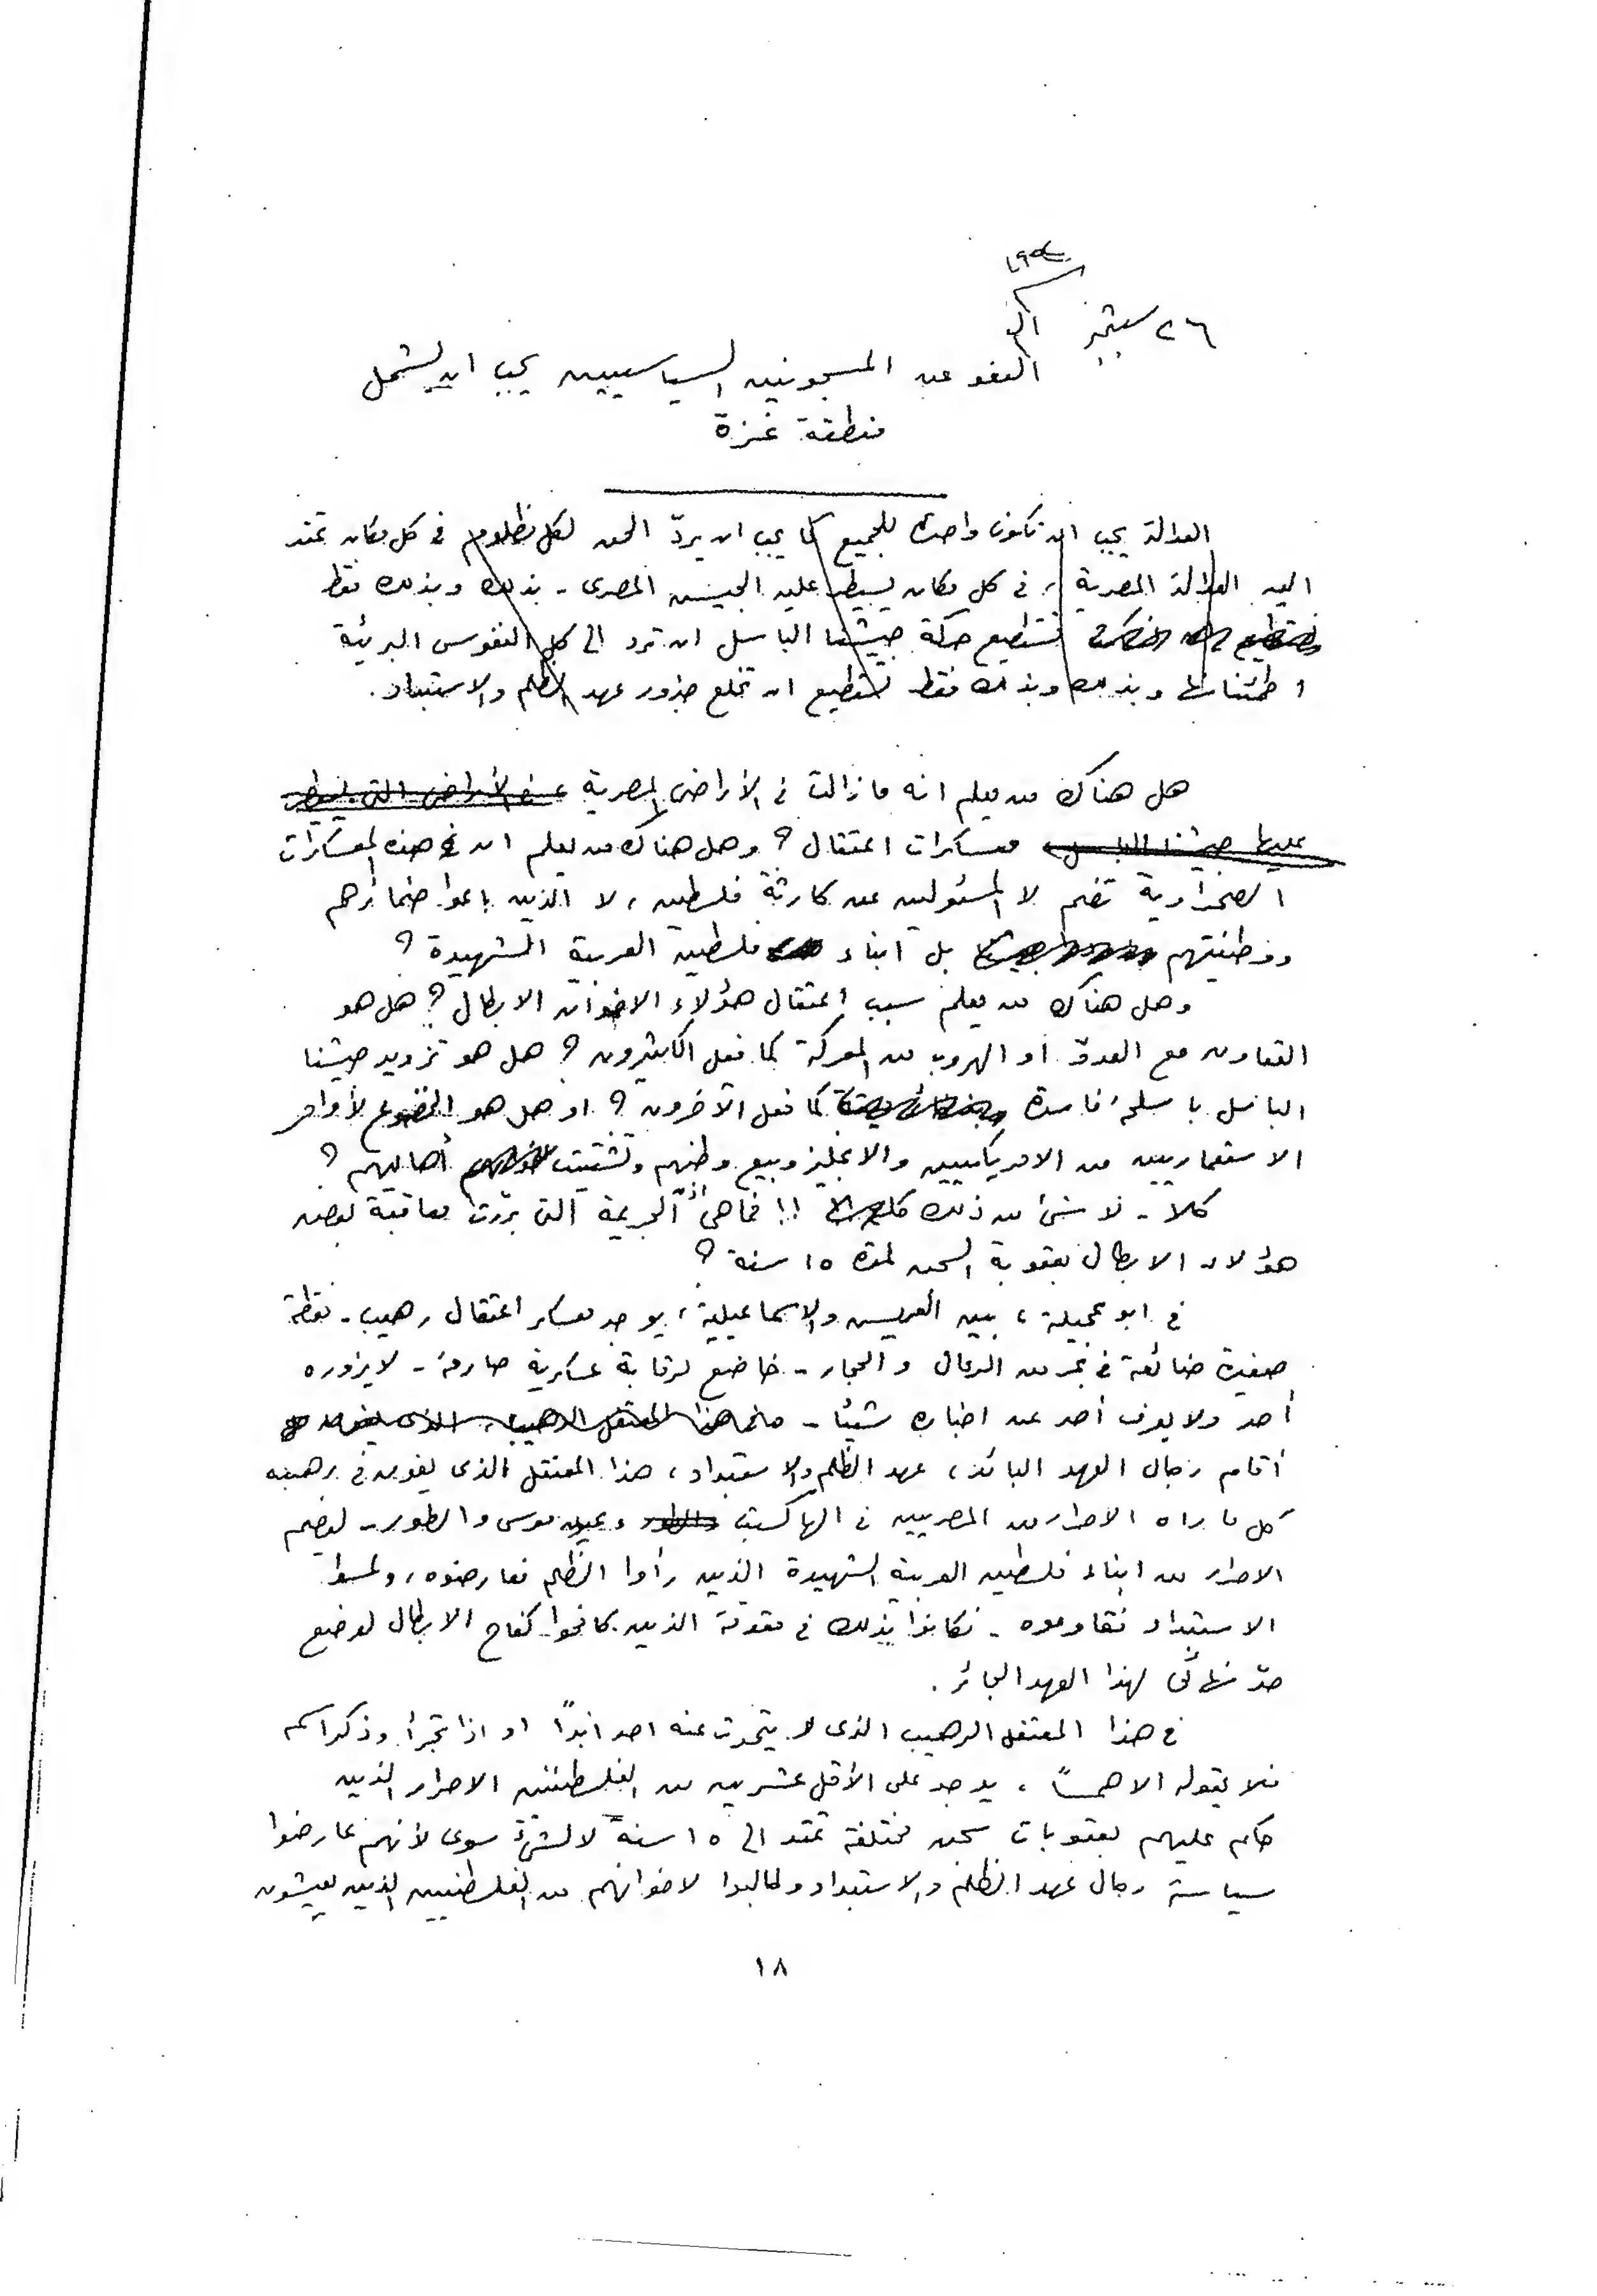 ٢٦ سبتمبر
العفو عن المسجونين السياسيين يجب ان يشمل
منطقة غزة
العدالة يجب ان تكون واحدة للجميع كما يجب ان يردّ الحق لكل مظلوم فى كل مكان تمتد
اليه العدالة المصرية، فى كل مكان يسيطر عليه الجيش المصرى - بذلك وبذلك فقط
تستطيع حركة جيشنا الباسل ان ترد الى كل النفوس البريئة
اطمئنانها وبذلك وبذلك فقط تستطيع ان تخلع جذور عهد الظلم والاستبداد.
هل هناك من يعلم انه مازالت فى الأراضى المصرية فى الأراضى التى يسيطر
عليها جيشنا الباسل، معسكرات اعتقال؟ وهل هناك من يعلم ان فى هذه المعسكرات
الصحراوية تضم لا المسئولين عن كارثة فلسطين، لا الذين باعوا ضمائرهم
ووطنيتهم بل ابناء فلسطين العربية الشهيدة؟
وهل هناك من يعلم سبب اعتقال هؤلاء الاخوان الابطال؟ هل هو
التعاون مع العدوّ او الهروب من المعركة كما فعل الكثيرون؟ هل هو تزويد جيشنا
الباسل باسلحة فاسدة كما فعل الآخرون؟ او هل هو الخضوع لأوامر
الاستعماريين من الامريكانيين والانجليز وبيع وطنهم وتشتيت أهاليهم؟
كلا - لا شئ من ذلك !! فما هى اذن الجريمة التى بررت معاقبة بعض
هؤلاء الابطال بعقوبة السجن لمدة ١٥ سنة؟
فى ابو عجيلة، بين العريش والاسماعيلية، يوجد معسكر اعتقال رهيب - نقطة
صغيرة ضائعة فى بحر من الرمال والحجار - خاضع لرقابة عسكرية صارمة - لا يزوره
أحد ولا يعرف أحد عن اخباره شيئا - هذا المعتقل الرهيب، الذى يفوق
أقام رجال العهد البائد، عهد الظلم والاستبداد، هذا المعتقل الذى يفوق فى رهبته
كل ما رآه الاحرار من المصريين فى الهاكستب وعيون موسى والطور - ليضم
الاحرار من ابناء فلسطين العربية الشهيدة الذين رأوا الظلم فعارضوه، ولمسوا
الاستبداد فقاوموه - فكانوا بذلك فى مقدمة الذين كافحوا كفاح الابطال لوضع
حدّ نهائى لهذا العهد الجائر.
فى هذا المعتقل الرهيب الذى لا يتحدث عنه احد ابدًا او اذا تجرأ وذكر اسمه
فلا يقوله الا همساً، يوجد على الأقل عشرين من الفلسطينين الاحرار الذين
حكم عليهم بعقوبات سجن مختلفة تمتد الى ١٥ سنة لا لشئ سوى لأنهم عارضوا
سياسة رجال عهد الظلم والاستبداد وطالبوا لاخوانهم من الفلسطنيين الذين يعيشون
١٨